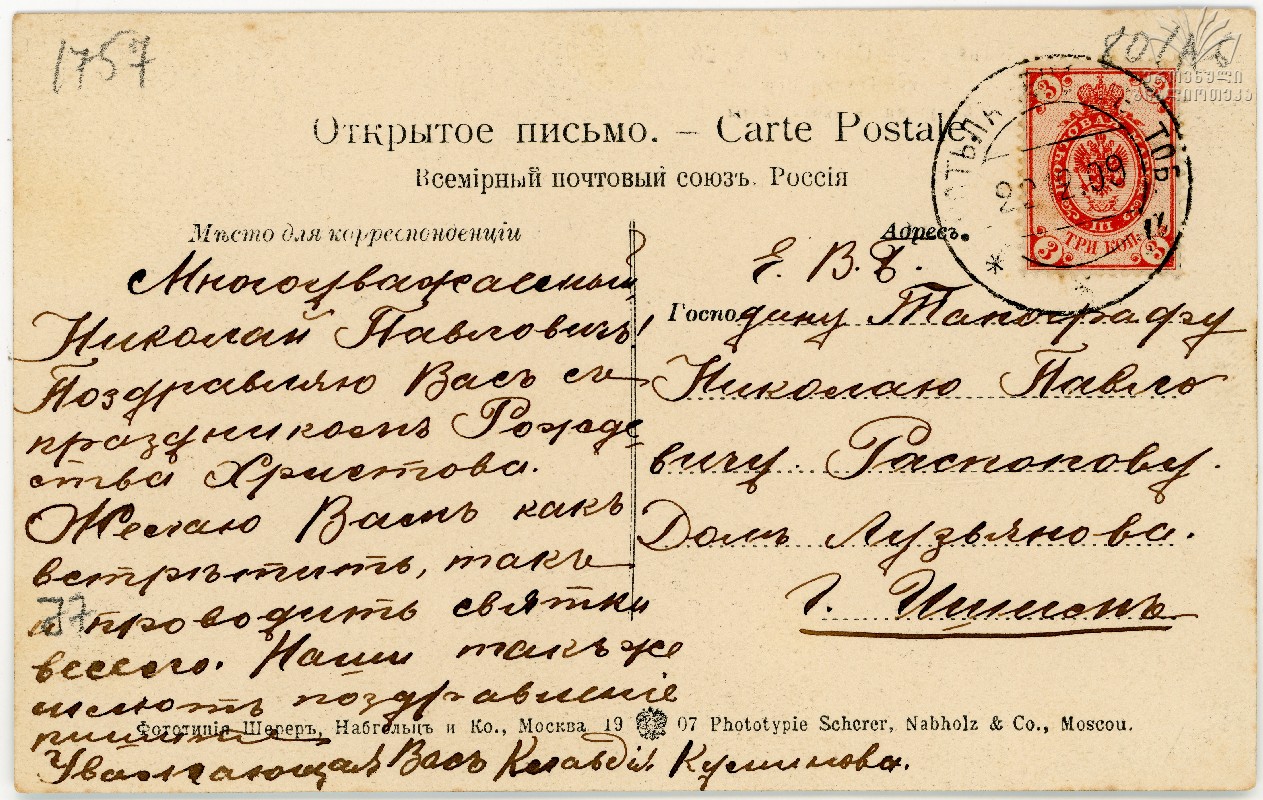 1757
Открытое письмо. – Carte Postale
Всемірный почтовый союзъ. Россія
Мѣсто для корреспонденціи
Многоуважаемый
Николай Павловичъ!
Поздравляю Васъ съ
праздникомъ Рождес
тва Христова.
Желаю Вамъ какъ
встрѣтить, такъ
и проводить святки
весело. Наши также
шлютъ поздравленіе
пишите
Уважающая Васъ Клавдія Куминова.
77
Адресъ.
Е. В. Б.
Господину Топографу
Николаю Павло
вичу Распопову.
Домъ Лузьянова.
г. Ишимъ
3 3
ПОЧТОВАЯ МАРКА
ТРИ КОП.
3 3
ТОБ.
09
Фототипія Шереръ, Набгольцъ и Ко., Москва 19 07 Phototypie Scherer, Nabholz & Co., Moscou.